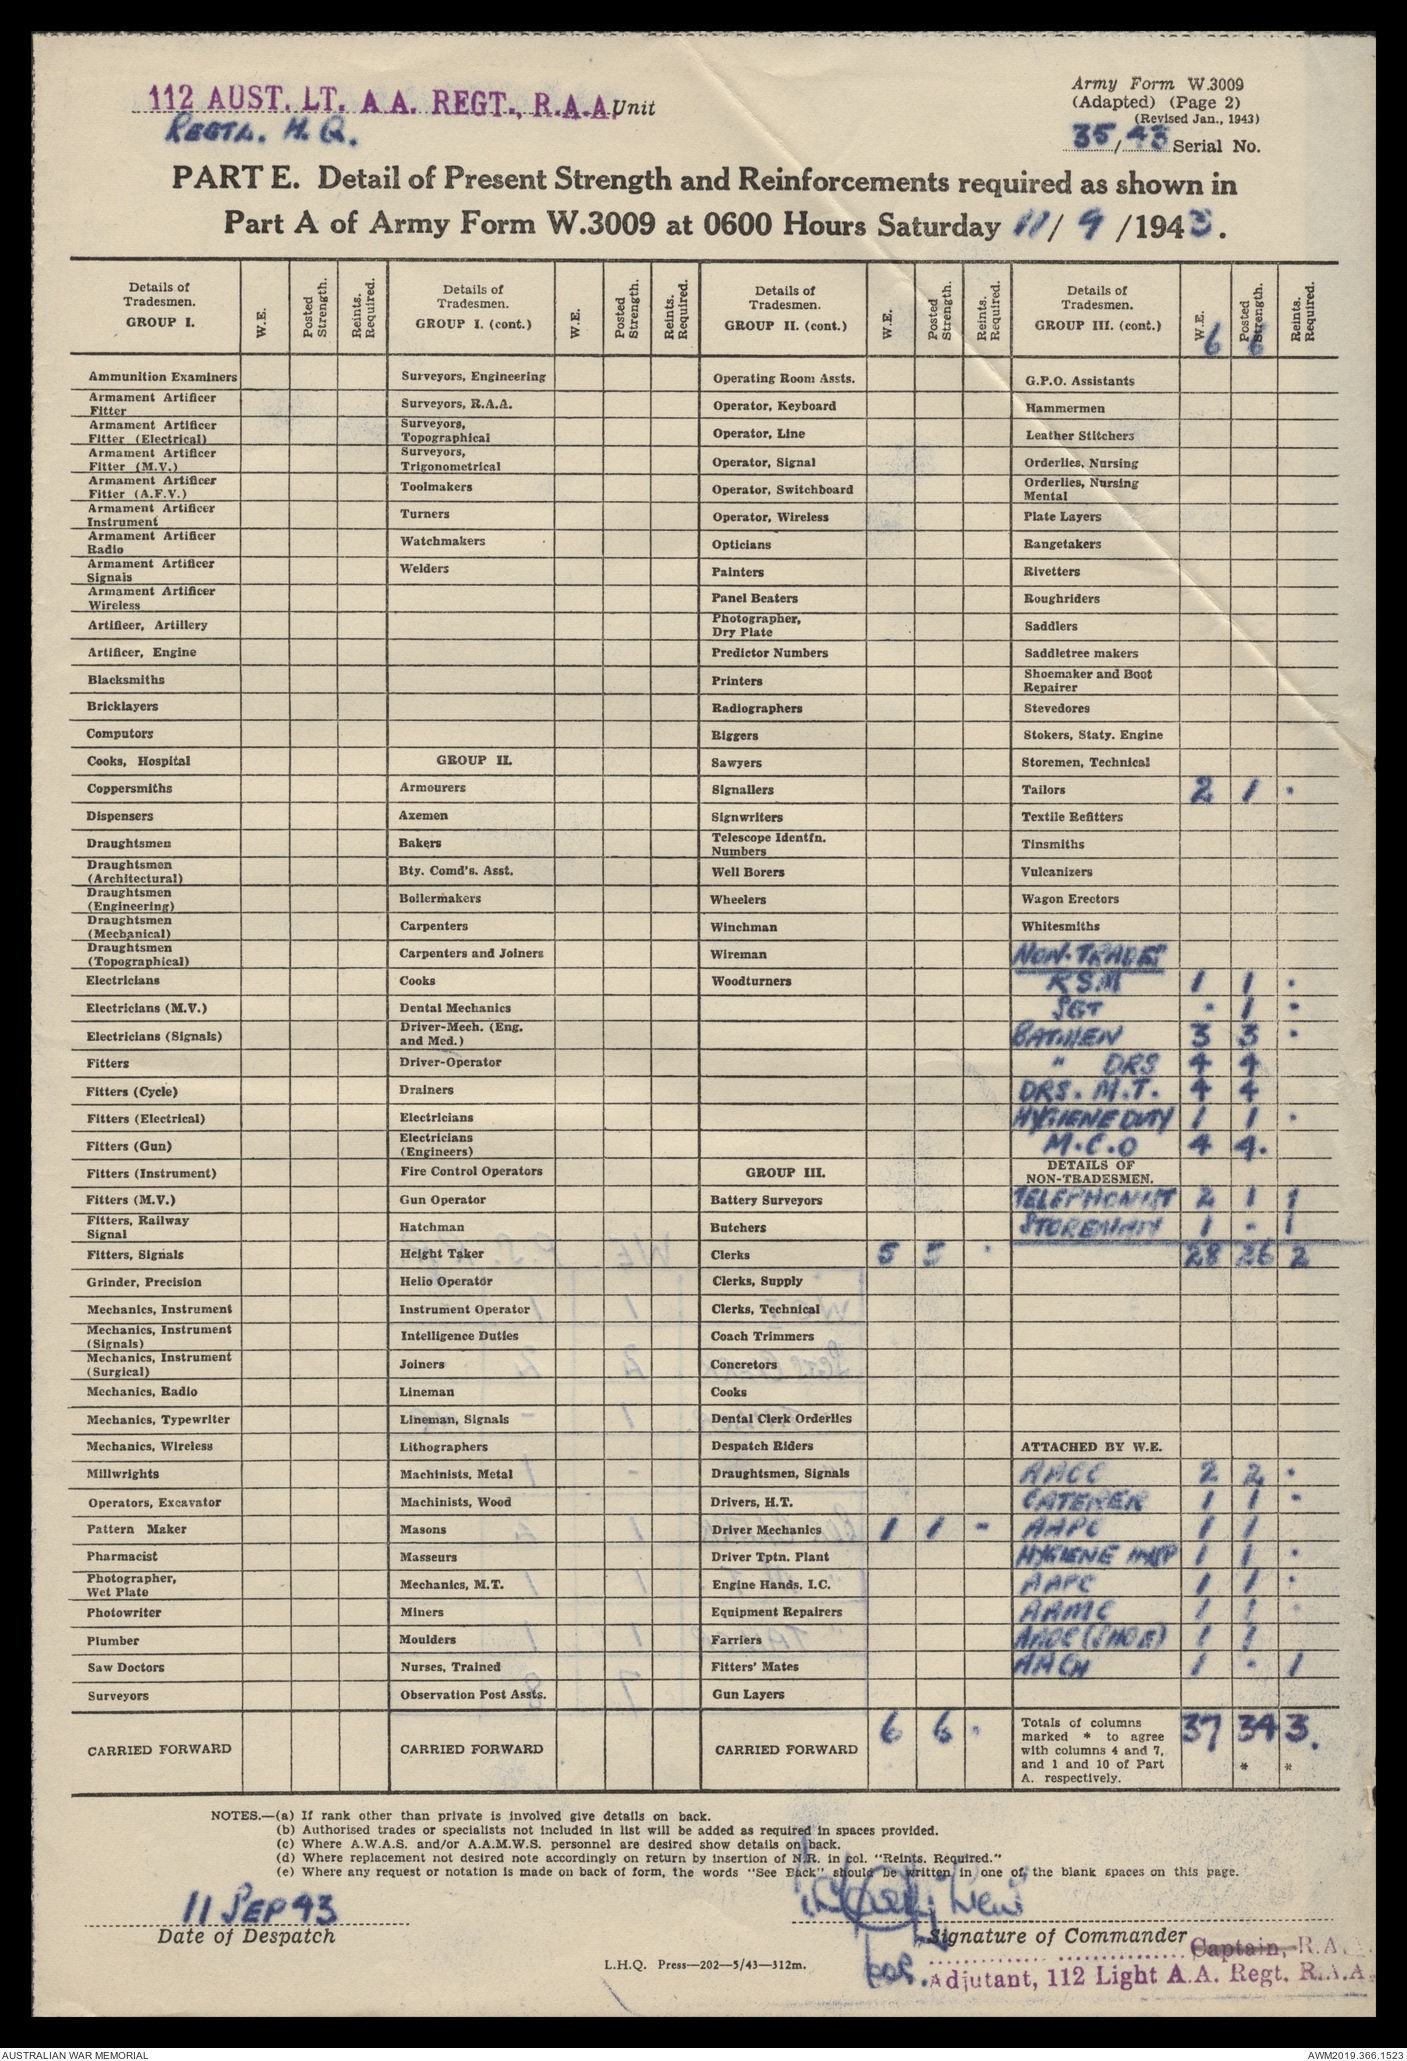 112 AUST. LT. A A. REGT., R.A.A. Unit
REGTL. H. Q.
Army Form W.3009
(Adapted) (Page 2)
(Revised Jan., 1943)
35/43 Serial No.
PART E. Detail of Present Strength and Reinforcements required as shown in
Part A of Army Form W.3009 at 0600 Hours Saturday 11/ 9 /1943.
Details of Tradesmen. GROUP I.
W.E.
Posted Strength.
Reints. Required.
Ammunition Examiners
Armament Artificer Fitter
Armament Artificer Fitter (Electrical)
Armament Artificer Fitter (M.V.)
Armament Artificer Fitter (A.F.V.)
Armament Artificer Instrument
Armament Artificer Radio
Armament Artificer Signals
Armament Artificer Wireless
Artificer, Artillery
Artificer, Engine
Blacksmiths
Bricklayers
Computors
Cooks, Hospital
Coppersmiths
Dispensers
Draughtsmen
Draughtsmen (Architectural)
Draughtsmen (Engineering)
Draughtsmen (Mechanical)
Draughtsmen (Topographical)
Electricians
Electricians (M.V.)
Electricians (Signals)
Fitters
Fitters (Cycle)
Fitters (Electrical)
Fitters (Gun)
Fitters (Instrument)
Fitters (M.V.)
Fitters, Railway Signal
Fitters, Signals
Grinder, Precision
Mechanics, Instrument
Mechanics, Instrument (Signals)
Mechanics, Instrument (Surgical)
Mechanics, Radio
Mechanics, Typewriter
Mechanics, Wireless
Millwrights
Operators, Excavator
Pattern Maker
Pharmacist
Photographer, Wet Plate
Photowriter
Plumber
Saw Doctors
Surveyors
CARRIED FORWARD
Details of Tradesmen. GROUP I. (cont.)
W.E.
Posted Strength.
Reints. Required.
Surveyors, Engineering
Surveyors, R.A.A.
Surveyors, Topographical
Surveyors, Trigonometrical
Toolmakers
Turners
Watchmakers
Welders
GROUP II.
Armourers
Axemen
Bakers
Bty. Comd's. Asst.
Boilermakers
Carpenters
Carpenters and Joiners
Cooks
Dental Mechanics
Driver-Mech. (Eng. and Med.)
Driver-Operator
Drainers
Electricians
Electricians (Engineers)
Fire Control Operators
Gun Operator
Hatchman
Height Taker
Helio Operator
Instrument Operator
Intelligence Duties
Joiners
Lineman
Lineman, Signals
Lithographers
Machinists, Metal
Machinists, Wood
Masons
Masseurs
Mechanics, M.T.
Miners
Moulders
Nurses, Trained
Observation Post Assts.
CARRIED FORWARD
Details of Tradesmen. GROUP II. (cont.)
W.E.
Posted Strength.
Reints. Required.
Operating Room Assts.
Operator, Keyboard
Operator, Line
Operator, Signal
Operator, Switchboard
Operator, Wireless
Opticians
Painters
Panel Beaters
Photographer, Dry Plate
Predictor Numbers
Printers
Radiographers
Riggers
Sawyers
Signallers
Signwriters
Telescope Identfn. Numbers
Well Borers
Wheelers
Winchman
Wireman
Woodturners
GROUP III.
Battery Surveyors
Butchers
Clerks 5 5 ·
Clerks, Supply
Clerks, Technical
Coach Trimmers
Concretors
Cooks
Dental Clerk Orderlies
Despatch Riders
Draughtsmen, Signals
Drivers, H.T.
Driver Mechanics 1 1 -
Driver Tptn. Plant
Engine Hands, I.C.
Equipment Repairers
Farriers
Fitters' Mates
Gun Layers
CARRIED FORWARD 6 6 ·
Details of Tradesmen. GROUP III. (cont.)
W.E. 6
Posted Strength. 6
Reints. Required.
G.P.O. Assistants
Hammermen
Leather Stitchers
Orderlies, Nursing
Orderlies, Nursing Mental
Plate Layers
Rangetakers
Rivetters
Roughriders
Saddlers
Saddletree makers
Shoemaker and Boot Repairer
Stevedores
Stokers, Staty. Engine
Storemen, Technical
Tailors 2 1 ·
Textile Refitters
Tinsmiths
Vulcanizers
Wagon Erectors
Whitesmiths
NON-TRADES
RSM 1 1 ·
SGT · 1 -
BATMEN 3 3 ·
" DRS 4 4
DRS. M.T. 4 4
HYGIENE DUTY 1 1 ·
M.C.O 4 4.
DETAILS OF NON-TRADESMEN.
TELEPHONIST 2 1 1
STOREMAN 1 - 1
28 26 2
ATTACHED BY W.E.
AACC 2 2 ·
CATERER 1 1 -
AAPC 1 1
HYGIENE INSP 1 1 ·
AAPC 1 1 ·
AAMC 1 1 ·
AAOC (SHOE) 1 1
AACH 1 - 1
Totals of columns marked * to agree with columns 4 and 7, and 1 and 10 of Part A. respectively. 37 34 3.
* *
NOTES.—(a) If rank other than private is involved give details on back.
(b) Authorised trades or specialists not included in list will be added as required in spaces provided.
(c) Where A.W.A.S. and/or A.A.M.W.S. personnel are desired show details on back.
(d) Where replacement not desired note accordingly on return by insertion of N.R. in col. "Reints. Required."
(e) Where any request or notation is made on back of form, the words "See Back" should be written in one of the blank spaces on this page.
11 SEP 43
Date of Despatch
Signature of Commander
L.H.Q. Press—202—5/43—312m.
for.
Captain, R.A.A.
Adjutant, 112 Light A.A. Regt. R.A.A.
AUSTRALIAN WAR MEMORIAL
AWM2019.366.1523